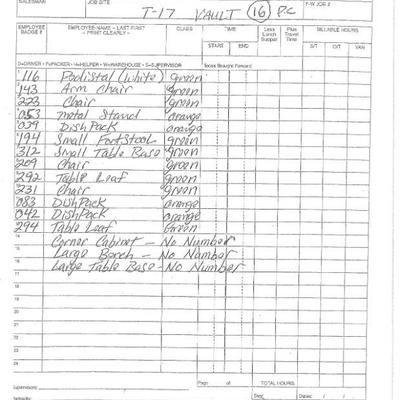 SALESMAN JOB SITE P-W JOB #
T-17 VAULT 16 PC
EMPLOYEE BADGE # EMPLOYEE NAME - LAST FIRST - PRINT CLEARLY - CLASS TIME START END Less Lunch Supper Plus Travel Time BILLABLE HOURS S/T O/T VAN
D=DRIVER • P=PACKER • H=HELPER • W=WAREHOUSE • S=SUPERVISOR Totals Brought Forward
116 Pedistal (White) Green
143 Arm Chair Green
223 Chair Green
053 metal Stand orange
039 DishPack orange
194 Small FootStool green
312 Small Table Base green
209 Chair Green
292 Table Leaf Green
231 Chair Green
083 DishPack orange
042 DishPack orange
294 Table Leaf Green
14 Corner Cabinet - No Number
15 Large Bench - No Number
16 Large Table Base - No Number
17
18
19
20
21
22
23
24
Page of TOTAL HOURS
Date Dates / /